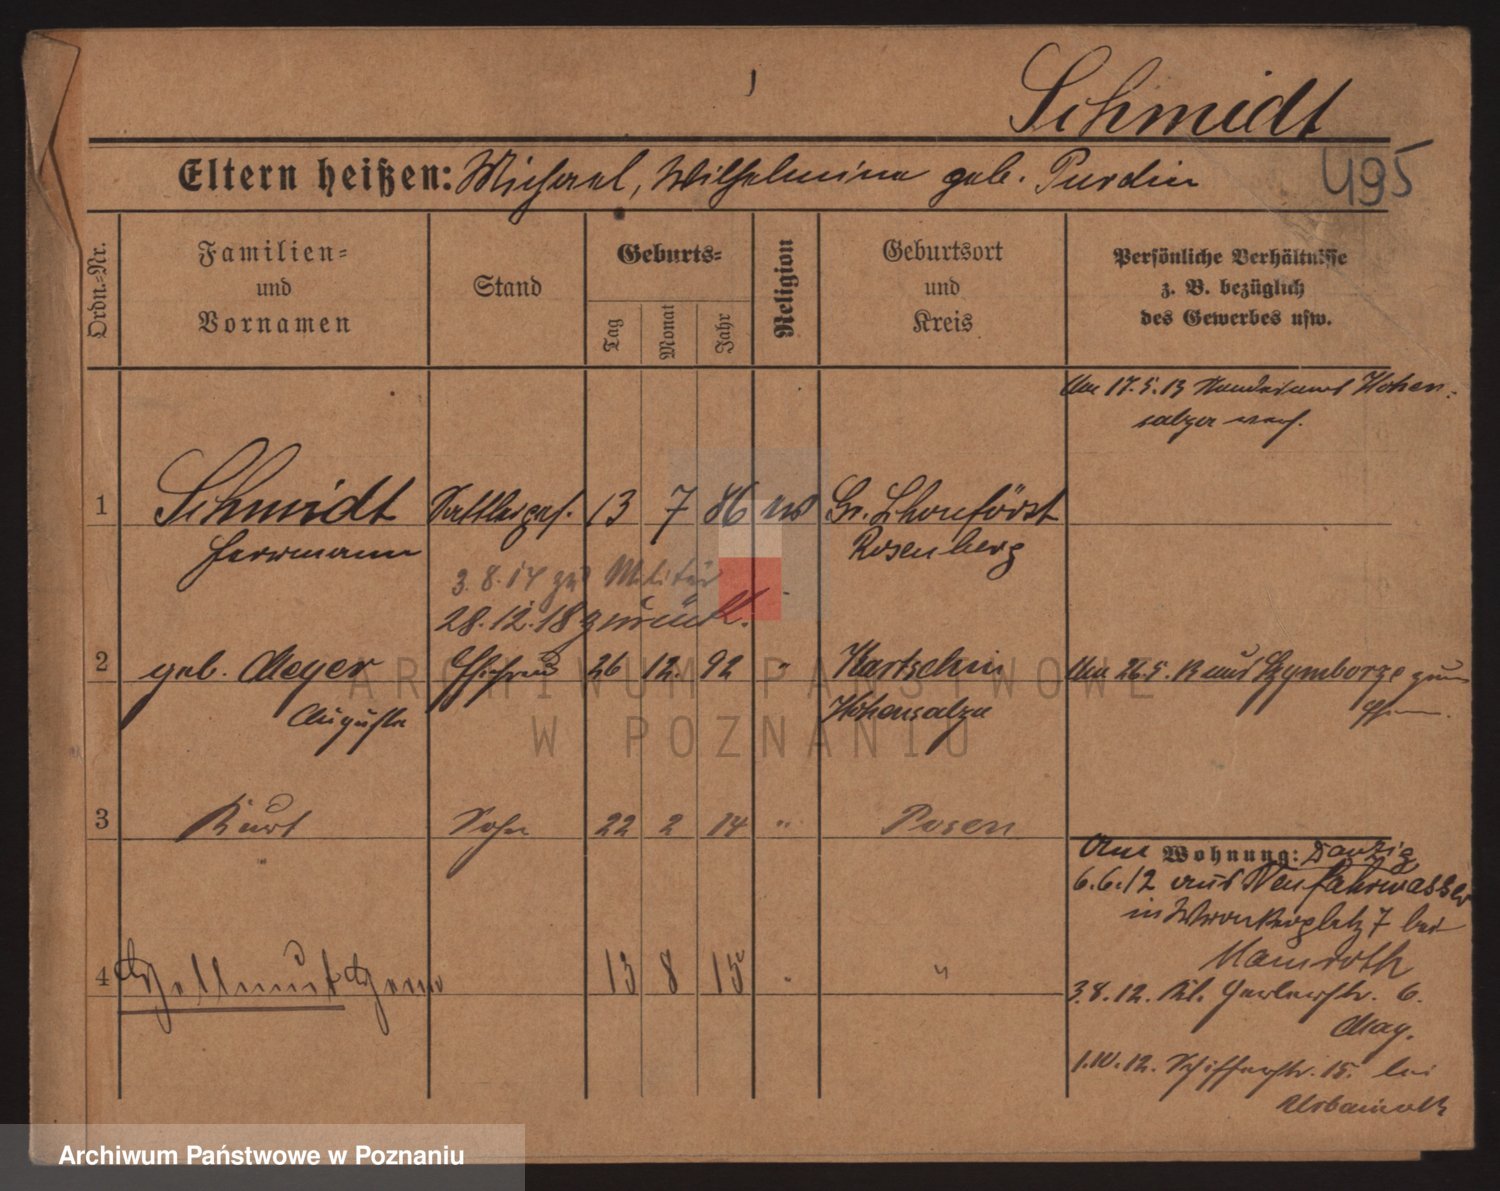 Schmidt
495
Eltern heißen: Michael, Wilhelmine geb. Purdin
Ordn.-Nr.
Familien-
und
Vornamen
Stand
Geburts-
Tag
Monat
Jahr
Religion
Geburtsort
und
Kreis
Persönliche Verhältnisse
z. B. bezüglich
des Gewerbes usw.
Am 17.5.13 Hohen-
salza
1 Schmidt Sattlerges. 13 7 86 Gr.
Herrmann Rosenberg
3.8.14 zum Militär
28.12.18 zurück.
2 geb. Meyer Ehefrau 26 12. 92 " Am 26.5. aus Szymborze
Auguste Hohensalza
3 Kurt Sohn 22 2 14 " Posen
Wohnung: Danzig
6.6.12 aus Neufahrwasser
in Wronkerplatz 7 bei
Mamroth
4 Hellmut 13 8 15 "
3.8.12. Kl. Gerberstr. 6.
May.
1.10.12. Schifferstr. 15. bei
ARCHIWUM PAŃSTWOWE
W POZNANIU
Archiwum Państwowe w Poznaniu